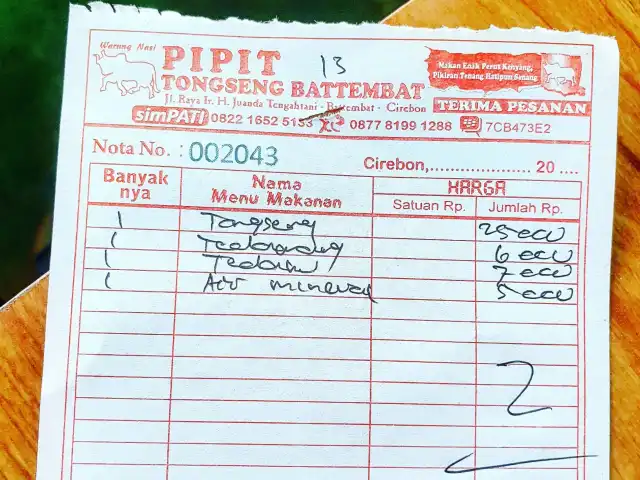 Warung Nasi
PIPIT
13
TONGSENG BATTEMBAT
Jl. Raya Ir. H. Juanda Tengahtani - Battembat - Cirebon
Makan Enak Perut Kenyang,
Pikiran Tenang Hatipun Senang
TERIMA PESANAN
simPATI 0822 1652 5153 XL 0877 8199 1288 7CB473E2
Nota No. : 002043
Cirebon,..................... 20 ....
Banyak nya Nama Menu Makanan HARGA
Satuan Rp. Jumlah Rp.
1 Tongseng 25000
1 6000
1 7000
1 Air mineral 5000
2